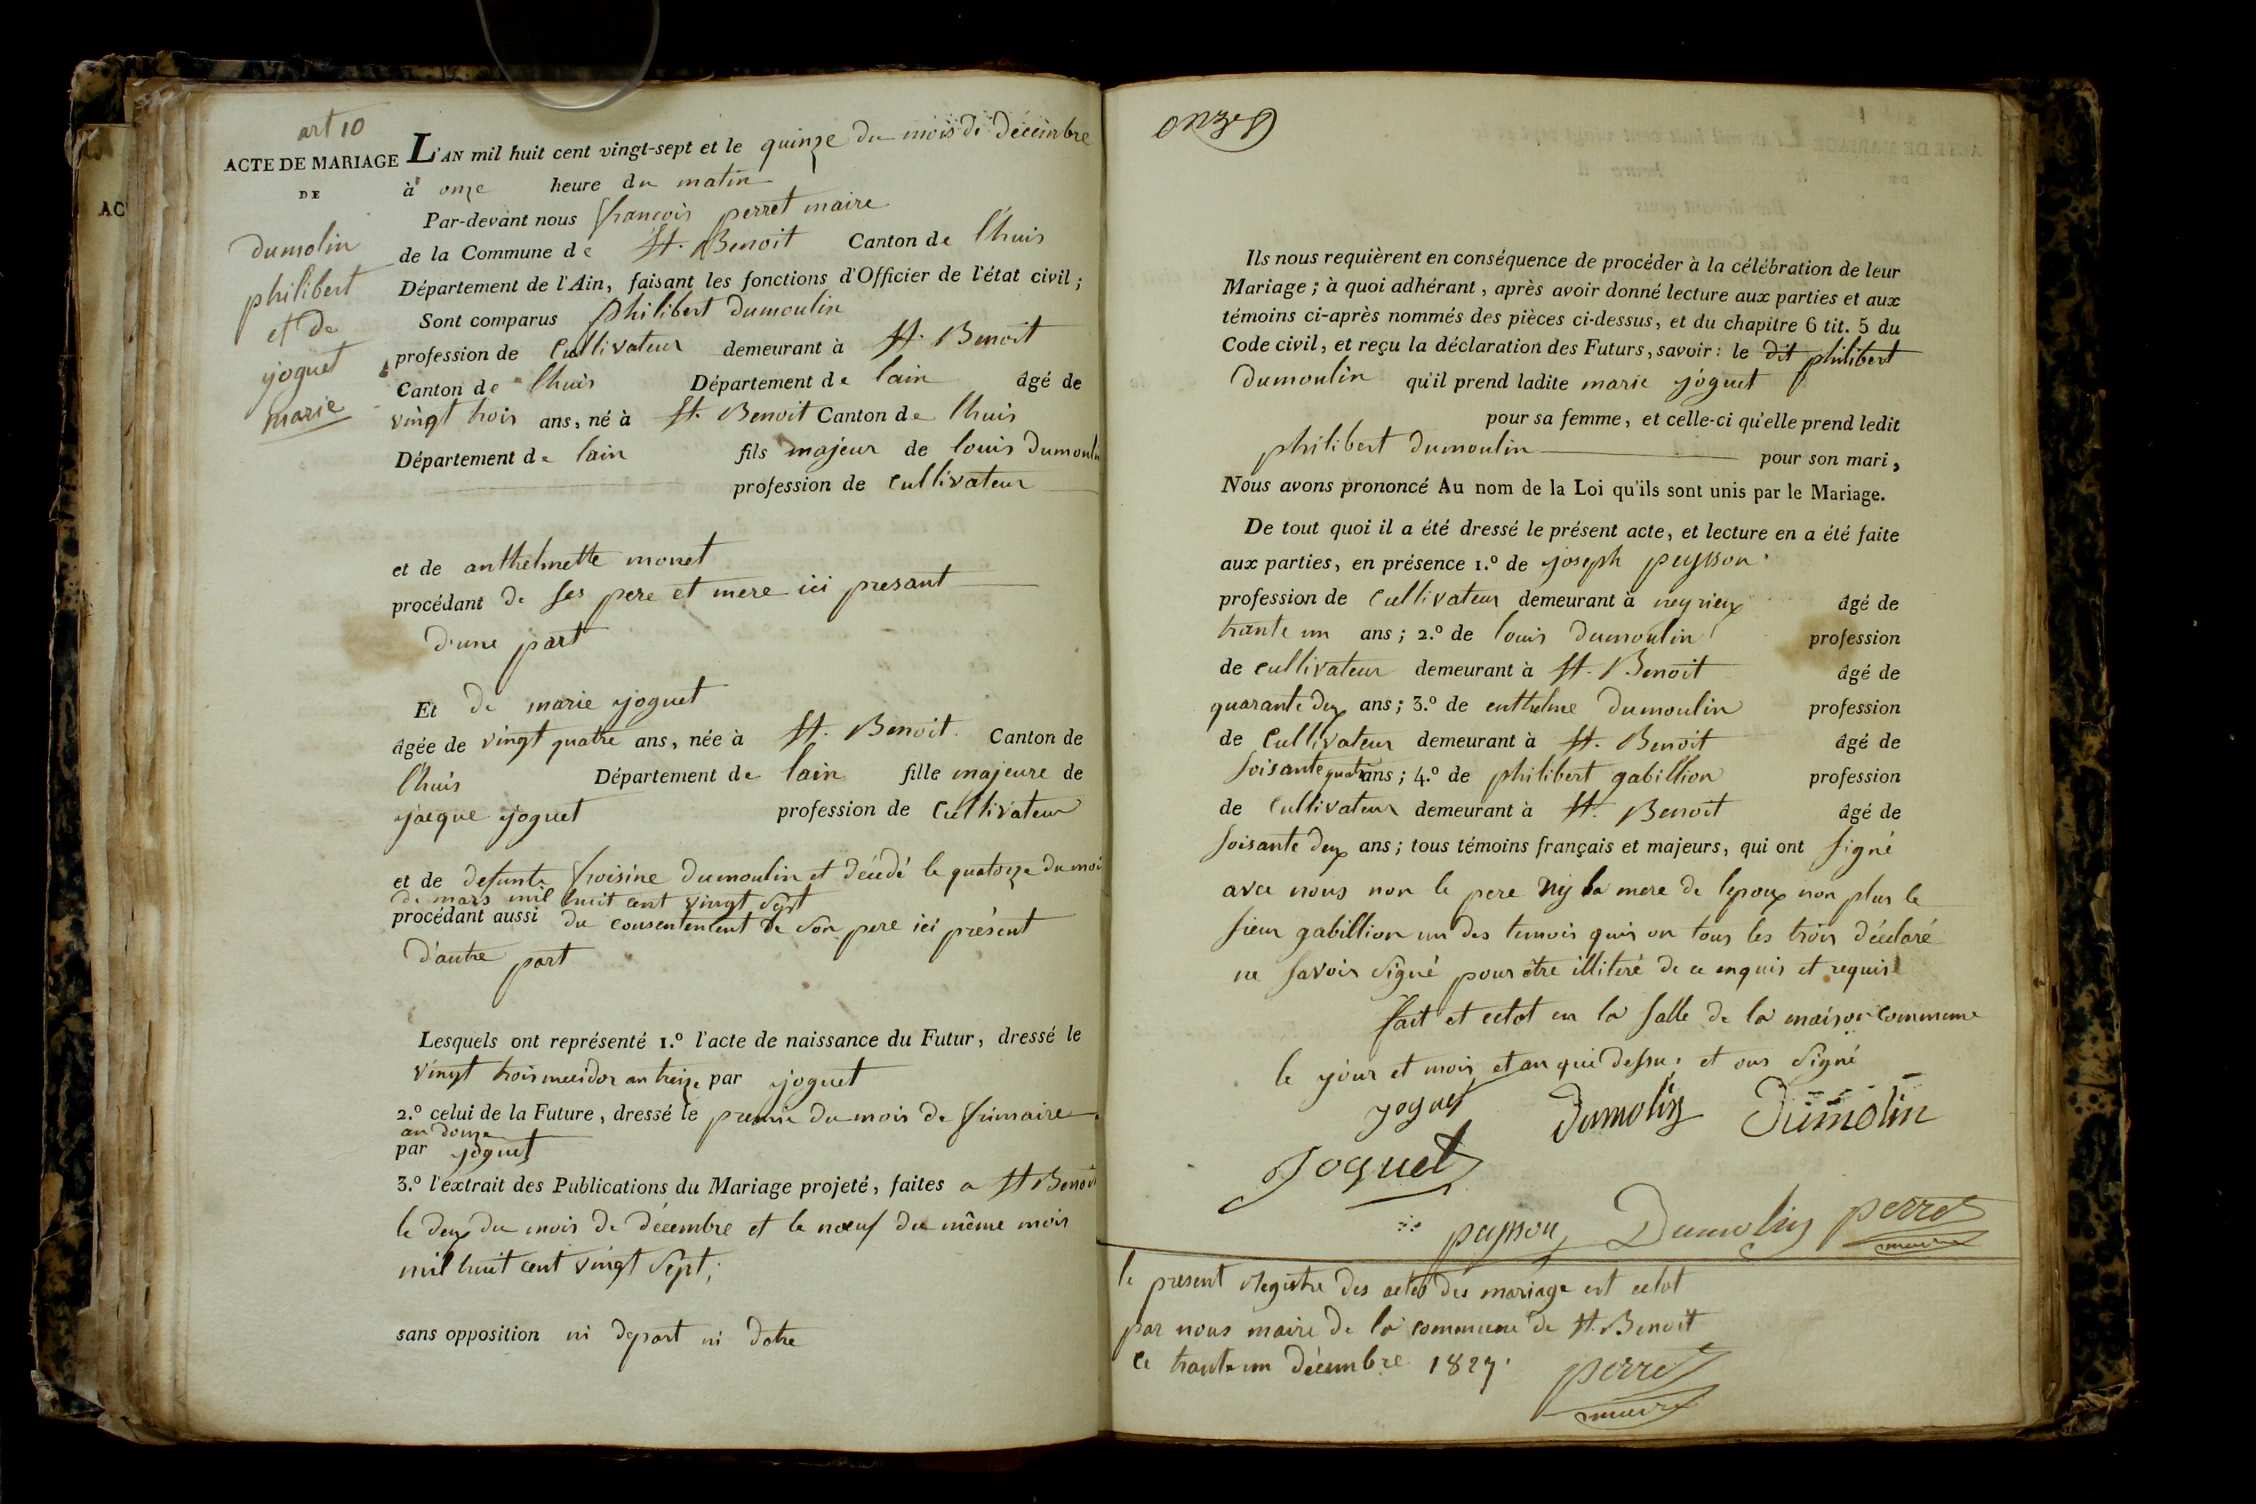 art 10
ACTE DE MARIAGE
DE
dumolin
philibert
et de
yoguet
marie
L'AN mil huit cent vingt-sept et le quinze du mois de décembre
à onze heure du matin
Par-devant nous françois perret maire
de la Commune de St. Benoit Canton de lhuis
Département de l'Ain, faisant les fonctions d'Officier de l'état civil;
Sont comparus philibert dumoulin
profession de Cultivateur demeurant à St. Benoit
Canton de lhuis Département de lain âgé de
vingt trois ans, né à St. Benoit Canton de lhuis
Département de lain fils majeur de louis Dumoulin
profession de Cultivateur
et de anthelmette monet
procédant de ses pere et mere ici presant
d'une part
Et de marie yoguet
âgée de vingt quatre ans, née à St. Benoit. Canton de
lhuis Département de lain fille majeure de
jacque yoguet profession de Cultivateur
et de defunte froisine dumoulin et décédé le quatorze du moi
de mars mil huit cent vingt sept
procédant aussi du consentement de son pere ici présent
d'autre part
Lesquels ont représenté 1.º l'acte de naissance du Futur, dressé le
vingt trois messidor an treize par yoguet
2.º celui de la Future, dressé le premier du mois de frimaire
an douze
par yoguet
3.º l'extrait des Publications du Mariage projeté, faites a St Benoit
le deux du mois de décembre et le nœuf du même mois
mil huit cent vingt sept;
sans opposition ni depart ni dotre
onze
Ils nous requièrent en conséquence de procéder à la célébration de leur
Mariage; à quoi adhérant, après avoir donné lecture aux parties et aux
témoins ci-après nommés des pièces ci-dessus, et du chapitre 6 tit. 5 du
Code civil, et reçu la déclaration des Futurs, savoir: le dit philibert
Dumoulin qu'il prend ladite marie yoguet
pour sa femme, et celle-ci qu'elle prend ledit
philibert dumoulin pour son mari,
Nous avons prononcé Au nom de la Loi qu'ils sont unis par le Mariage.
De tout quoi il a été dressé le présent acte, et lecture en a été faite
aux parties, en présence 1.º de joseph peysson
profession de Cultivateur demeurant à neyrieux âgé de
trante un ans; 2.º de louis dumoulin profession
de cultivateur demeurant à St. Benoit âgé de
quarante deux ans; 3.º de enthelme Dumoulin profession
de Cultivateur demeurant à St. Benoit âgé de
soisante quatre ans; 4.º de philibert gabillion profession
de Cultivateur demeurant à St. Benoit âgé de
soisante deux ans; tous témoins français et majeurs, qui ont signé
avec nous non le pere ny la mere de lepoux non plus le
sieur gabillion un des temois quis on tous les trois déclaré
ne savoir signé pour être illiteré de ce enquis et requis
fait et cclot en la salle de la maison commune
le jour et mois et an qui dessus et ons signé
yoguet Dumolin Dumolin
Joguet
peysson Dumolin perret
maire
le present registre des actes du mariage est cclot
par nous maire de la commune de St. Benoit
ce trante un décembre 1827.
perret
maire